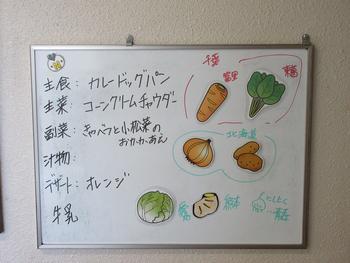 主食: カレードッグパン
主菜: コーンクリームチャウダー
副菜: キャベツと小松菜の
おかかあえ
汁物:
デザート: オレンジ
牛乳
千葉
富里
北海道
にんにく